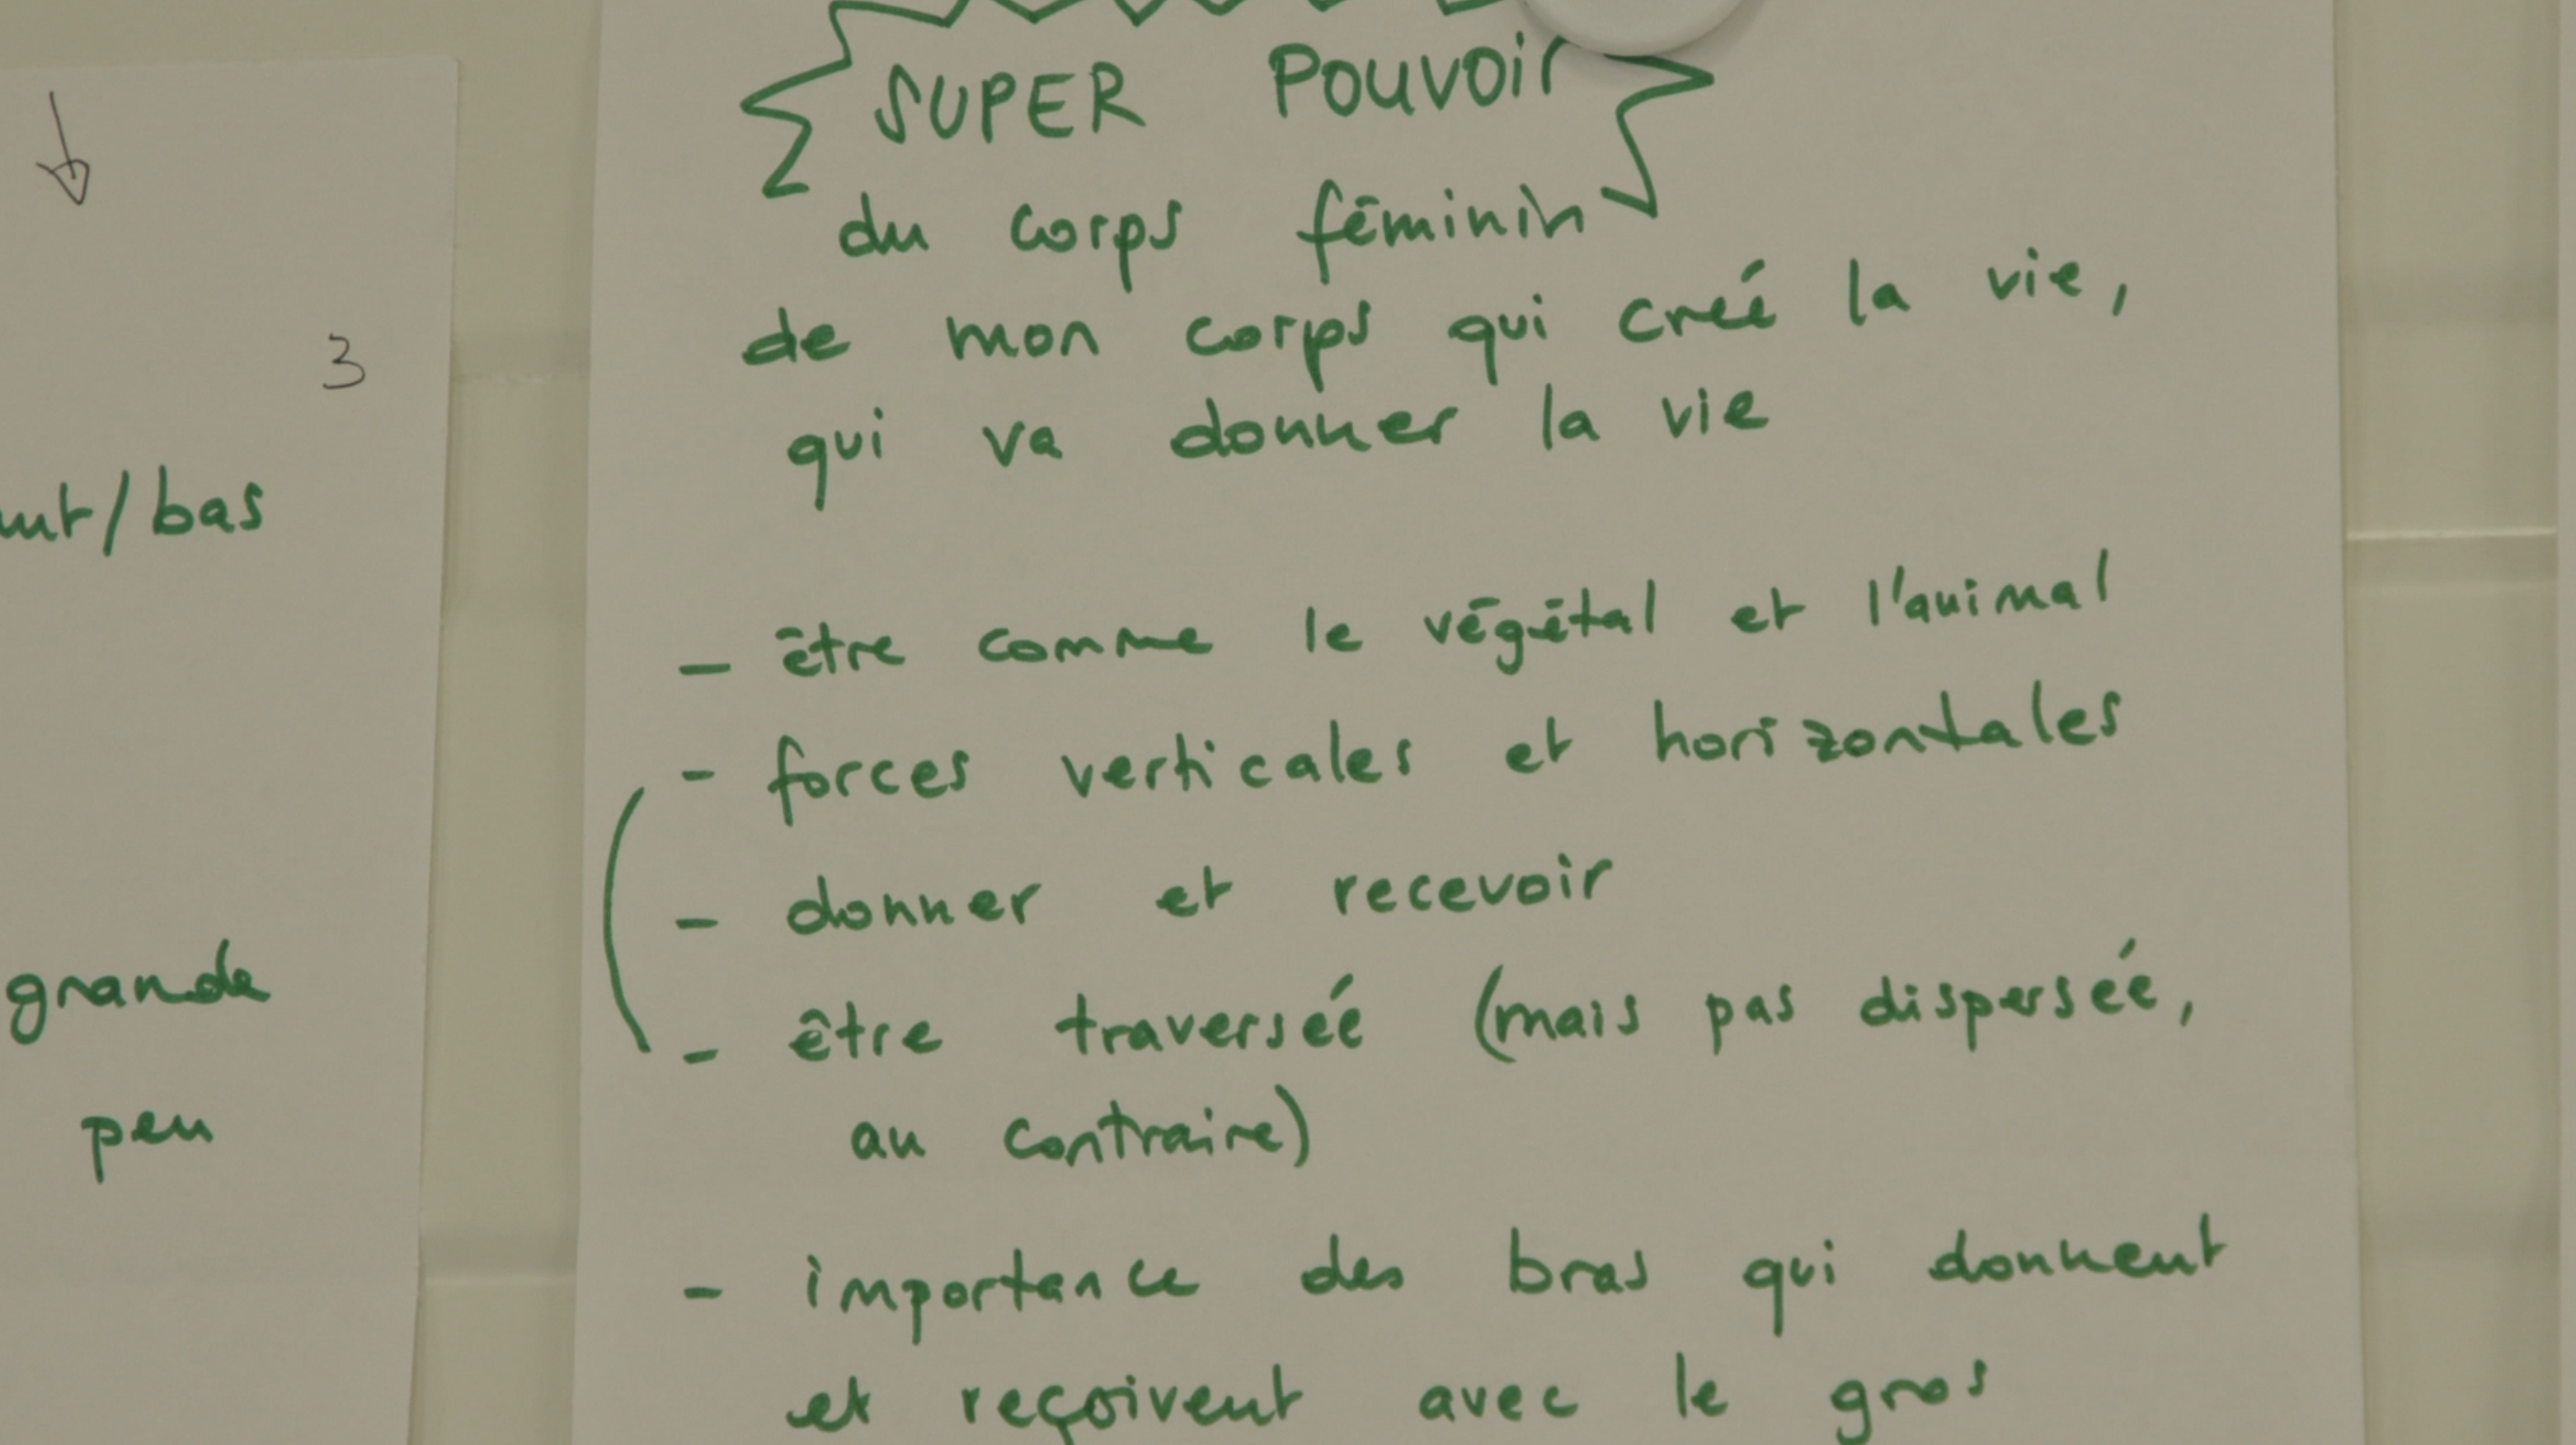 3
/bas
grande
peu
SUPER POUVOir
du corps féminin
de mon corps qui créé la vie,
qui va donner la vie
- être comme le végétal et l'animal
- forces verticales et horizontales
- donner et recevoir
- être traversée (mais pas dispersée,
au contraire)
- importance des bras qui donnent
et reçoivent avec le gros